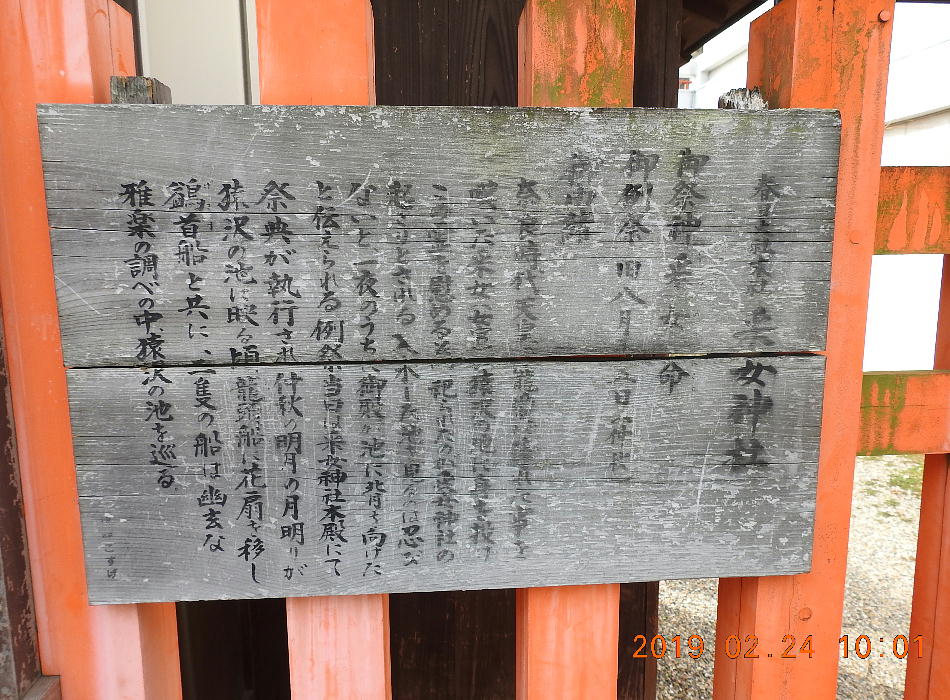 春日大社末社 采女神社
御祭神 采女命
御例祭 旧八月十五日
御由緒
奈良時代 天皇の寵愛が薄れた事を
嘆いた采女 女官が猿沢の池に身を投げ
この霊を慰める
起こりとされる 入水した池を見るは忍び
ないと一夜のうちに御殿が池に背を向けた
と伝えられる 例祭当日は采女神社本殿にて
祭典が執行され 仲秋の明月の月明りが
猿沢の池に映る頃 龍頭船に花扇を移し
鷁首船と共に 二隻の船は幽玄な
雅楽の調べの中 猿沢の池を巡る
2019 02.24 10:01